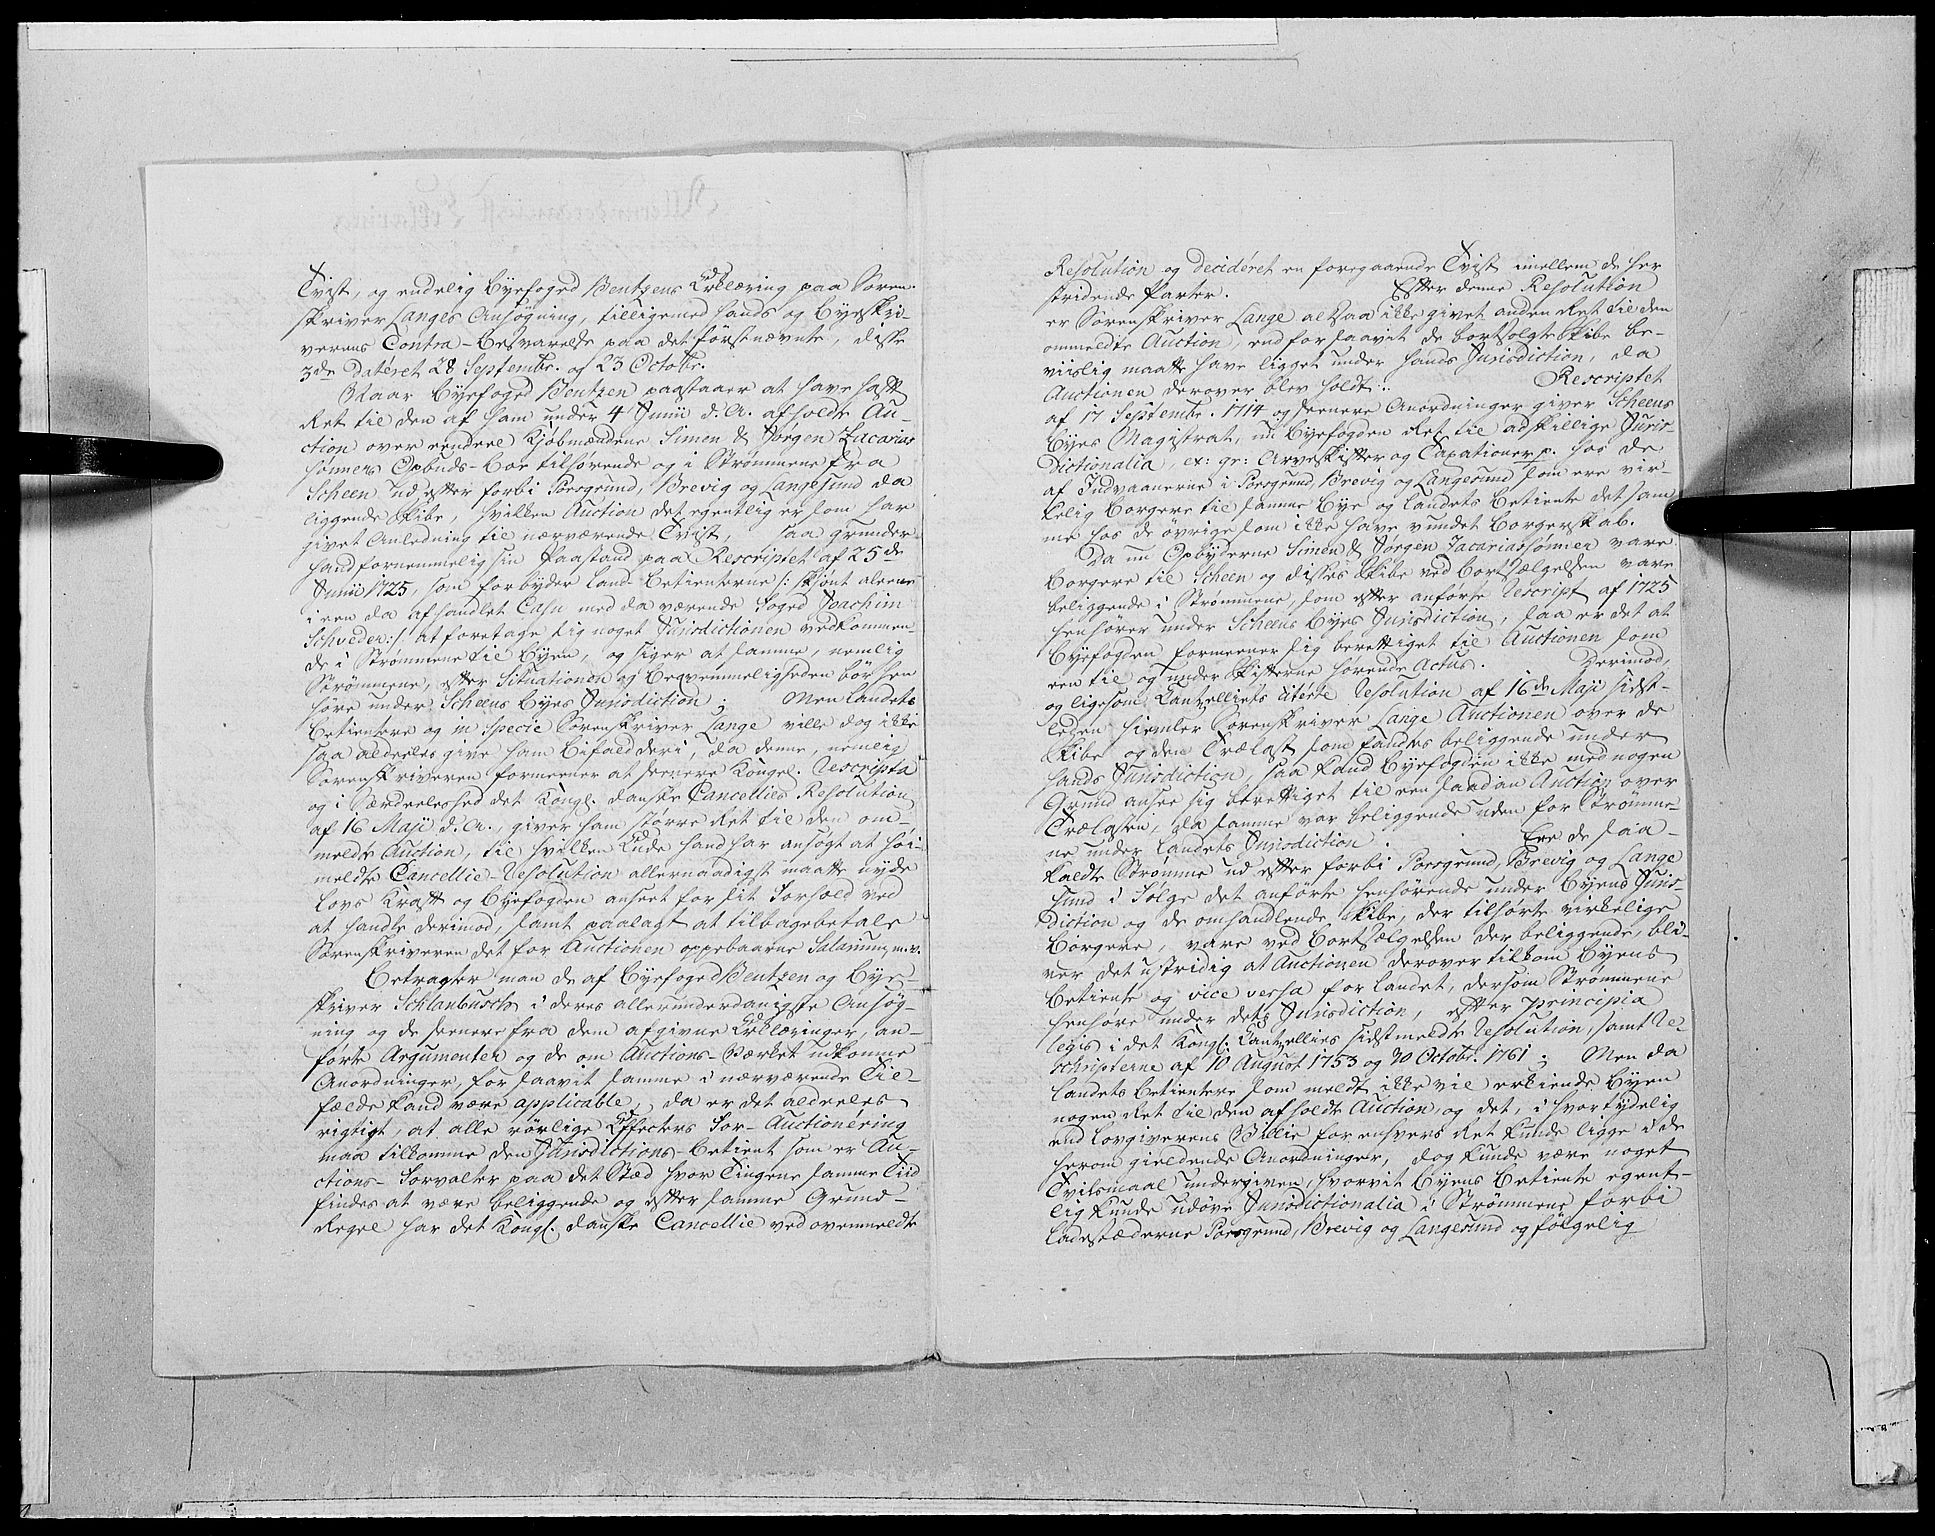 Tvist, og endelig Byefoged Bentzens Erklæring paa Soren-
skriver Langes Ansøgning, tilligemed hands og Byeskri-
verens Contra-besvarelse paa det førstnævnte, disse
3de datéret 28 Septembr. og 23 Octobr.
Naar Byefoged Bentzen paastaaer at have haft
Ret til den af ham under 4 Junii d. A. afholdte Au-
ction over eendeel Kjøbmændene Simen & Jørgen Zacarias
sønners Opbuds-boe tilhørende og i Strømmene fra
Scheen ud efter forbi Porsgrund, Brevig og Langesund da
liggende Skibe, hvilken Auction det egentlig er som har
givet Anledning til nærværende Tvist, saa grunder
hand fornemmelig sin Paastand paa Rescriptet af 25de
Junii 1725, som forbyder Land-betienterne /: skjønt aleene
i een da afhandlet Casu med da værende Foged Joachim
Schveder :/ at foretage sig noget Jurisdictionen vedkommen-
de i Strømmene til Byen, og siger at samme, nemlig
Strømmene, efter Situationen og beqvemmeligheden bør hen
høre under Scheens Byes Jurisdiction; Men Landets
betientere og in specie Sorenskriver Lange ville dog ikke
saa aldeeles give ham bifald deri, da denne, nemlig
Sorenskriveren formeener at seenere Kongel. Rescripta
og i Særdeeleshed det Kongl. danske Cancellies Resolution
af 16 Maji d. A., giver ham større Ret til den om-
meldte Auction, til hvilken Ende hand har ansøgt at høi-
meldte Cancellie-Resolution allernaadigst maatte nyde
Lovs Kraft og Byefogden anseet for sit Forhold ved
at handle derimod, samt paalagt at tilbagebetale
Sorenskriveren det for Auctionen oppebaarne Salarium, m. v.
Betragter man de af Byefoged Bentzen og Bye-
skriver Schlanbusch i deres allerunderdanigste Ansøg-
ning og de seenere fra dem afgivne Erklæringer, an-
førte Argumenter og de om Auctions-Værket udkomne
Anordninger, for saavit samme i nærværende Til-
fælde kand være applicable, da er det aldeeles
rigtigt, at alle rørlige Effecters For-Auctionéring
maa tilkomme den Jurisdictions-betient som er Au-
ctions-Forvalter paa det Stæd hvor Tingene samme Tiid
findes at være beliggende og efter samme Grund-
Regel har det Kongl. danske Cancellie ved ovenmeldte
Resolution og decidéret en foregaaende Tvist imellem de her
stridende Parter. Efter denne Resolution
er Sorenskriver Lange altsaa ikke givet anden Ret til den
ommeldte Auction, end for saavit de bortsolgte Skibe be-
viislig maatte have ligget under hands Jurisdiction, da
Auctionen derover blev holdt. Rescriptet
af 17 Septembr. 1714 og seenere Anordninger giver Scheens
Byes Magistrat, nu Byefogden Ret til adskillige Juris-
dictionalia, ex: gr: Arveskifter og Taxationer p. hos de
af Indvaanerne i Porsgrund, Brevig og Langesund som ere vir-
kelig borgere til samme Bye og Landets betiente det sam
me hos de øvrige som ikke have vundet borgerskab.
Da nu Opbyderne Simen & Jørgen Zacariassønner vare
borgere til Scheen og disses Skibe ved bortsælgelsen vare
beliggende i Strømmene, som efter anførte Rescript af 1725
henhører under Scheens Byes Jurisdiction, saa er det at
Byefogden formeener sig berettiget til Auctionen som
een til og under Skifterne hørende Actus. Derimod,
og ligesom Cantzelliets citérte Resolution af 16de Maji sidst-
leden hiemler Sorenskriver Lange Auctionen over de
Skibe og den Trælast som fandtes beliggende under
hands Jurisdiction, saa kand Byefogden ikke med nogen
Grund ansee sig berettiget til een saadan Auction over
Trælasten, da samme var beliggende uden for Strømme-
ne under Landets Jurisdiction. Ere de saa-
kaldte Strømme ud efter forbi Porsgrund, Brevig og Lange
sund i Følge det anførte henhørende under Byens Juris-
diction og de omhandlende Skibe, der tilhørte virkelige
borgere, vare ved bortsælgelsen der beliggende, bli-
ver det ustridig at Auctionen derover tilkom Byens
betiente og vice versa for Landet, dersom Strømmene
henhøre under dets Jurisdiction, efter principia
legis i det Kongl. Cantzellies sidstmeldte Resolution, samt Re-
schripterne af 10 August 1753 og 30 Octobr. 1761; Men da
Landets betientere som meldt ikke vil erkiende Byen
nogen Ret til den afholdte Auction, og det, i hvor tydelig
end Lovgiverens Villie for enhvers Ret kunde ligge i de
herom gieldende Anordninger, dog kunde være noget
Tvilsmaal undergiven, hvorvit Byens betiente egent-
lig kunde udøve Jurisdictionalia i Strømmene forbi
Ladestæderne Porsgrund, Brevig og Langesund og følgelig